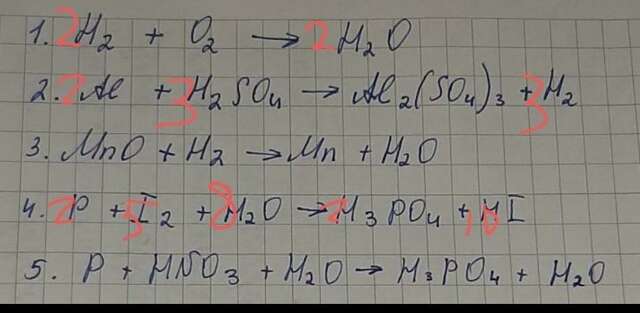 1. 2H₂ + O₂ → 2H₂O
2. 2Al + 3H₂SO₄ → Al₂(SO₄)₃ + 3H₂
3. MnO + H₂ → Mn + H₂O
4. 2P + 5I₂ + 8H₂O → 2H₃PO₄ + 10HI
5. P + HNO₃ + H₂O → H₃PO₄ + H₂O